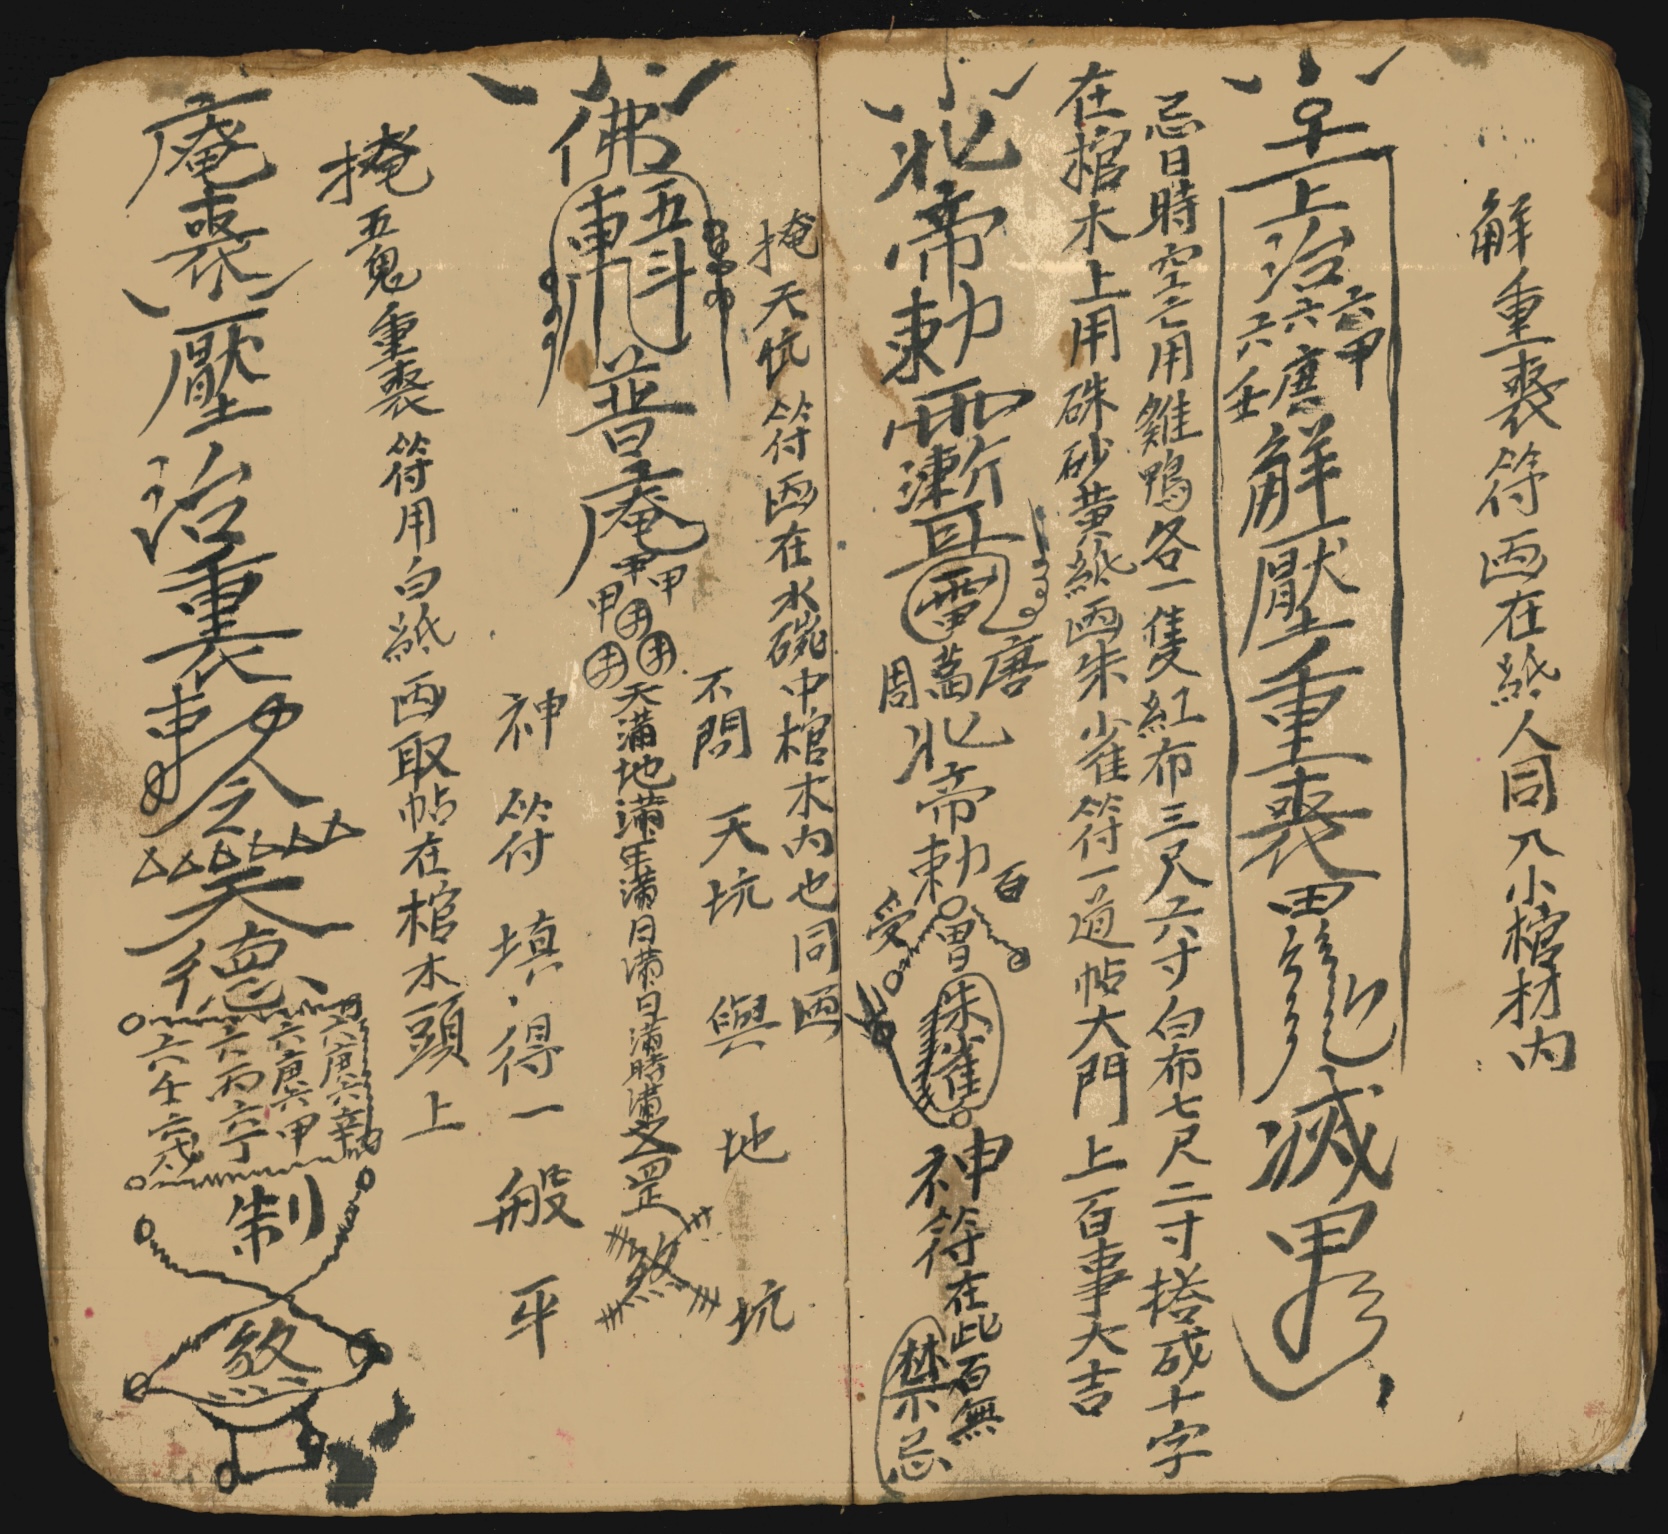 解重喪符画在紙人同入小棺材内
上治六甲六庚六壬解壓重喪
滅
忌日時空亡用雞鴨各一隻紅布三尺六寸白布七尺二寸搭成十字
在棺木上用硃砂黄紙画朱雀符一道帖大門上百事大吉
北帝勅
唐
周
北帝勅
百
受
朱雀
神符在此百無禁忌
掩天坑符画在水碗中棺木内也同画
不問天坑與地坑
佛
五斗
普庵
甲甲
天滿地滿年滿月滿日滿時滿
罡
煞
神符填得一般平
掩五鬼重喪符用白紙画取帖在棺木頭上
庵喪壓治重喪
天德
六庚六辛
六庚六甲
六丙六丁
六壬六戊
制
煞